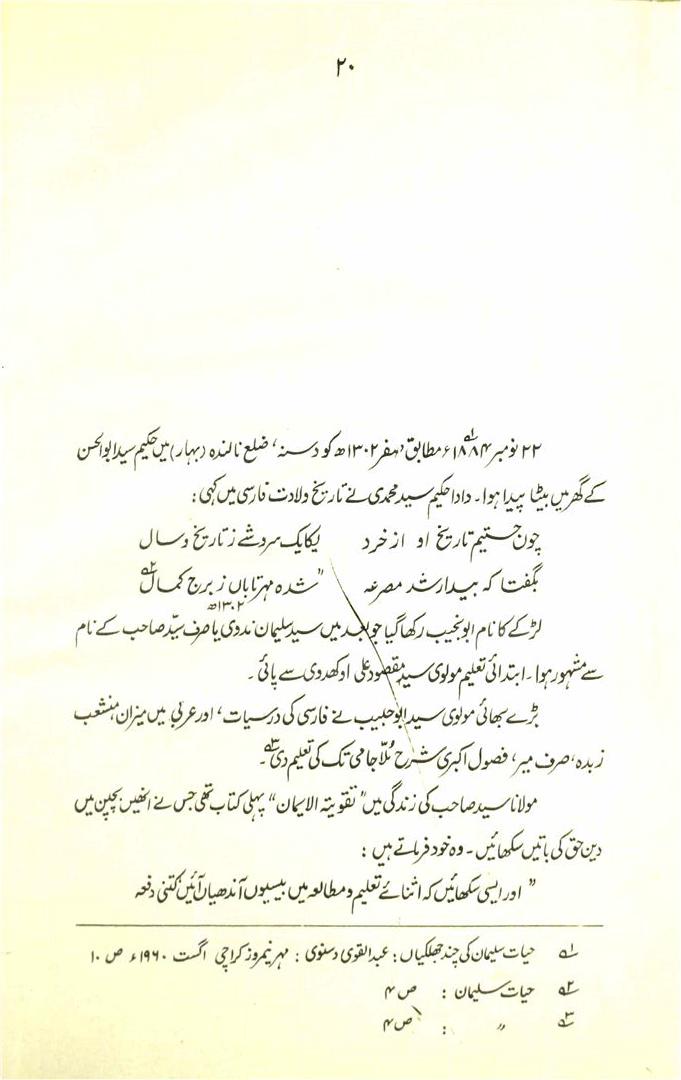 ۲۰
۲۲ نومبر ۱۸۸۴ء؁۱ مطابق ’صفر ۱۳۰۲ھ کو دسنہ، ضلع نالندہ (بہار) میں حکیم سید ابوالحسن
کے گھر میں بیٹا پیدا ہوا۔ دادا حکیم سید محمدی نے تاریخ ولادت فارسی میں کہی:
چون جستیم تاریخ او از خرد یکایک سردشے ز تاریخ و سال
بگفتا کہ بیدار شد مصرعہ ”شدہ مہر تاباں ز برج کمال ؁۲
۱۳۰۲ھ
لڑکے کا نام ابونجیب رکھا گیا جو بعد میں سید سلیمان ندوی یا صرف سیّد صاحب کے نام
سے مشہور ہوا۔ ابتدائی تعلیم مولوی سید مقصود علی اوکھدوی سے پائی۔
بڑے بھائی مولوی سید ابو حبیب نے فارسی کی درسیات، اور عربی میں میزان منشعب
زبدہ، صرف میر، فصول اکبری شرح مُلّا جامی تک کی تعلیم دی ؁۳۔
مولانا سید صاحب کی زندگی میں ”تقویتہ الایمان“ پہلی کتاب تھی جس نے انھیں بچپن میں
دین حق کی باتیں سکھائیں۔ وہ خود فرماتے ہیں:
” اور ایسی سکھائیں کہ اثنائے تعلیم و مطالعہ میں بیسیوں آندھیاں آئیں، کتنی دفعہ
؁۱ حیات سلیمان کی چند جھلکیاں: عبدالقوی دسنوی: مہر نیمروز کراچی اگست ۱۹۶۰ء ص ۱۰
؁۲ حیات سلیمان: ص ۴
؁۳ ” : ص ۴